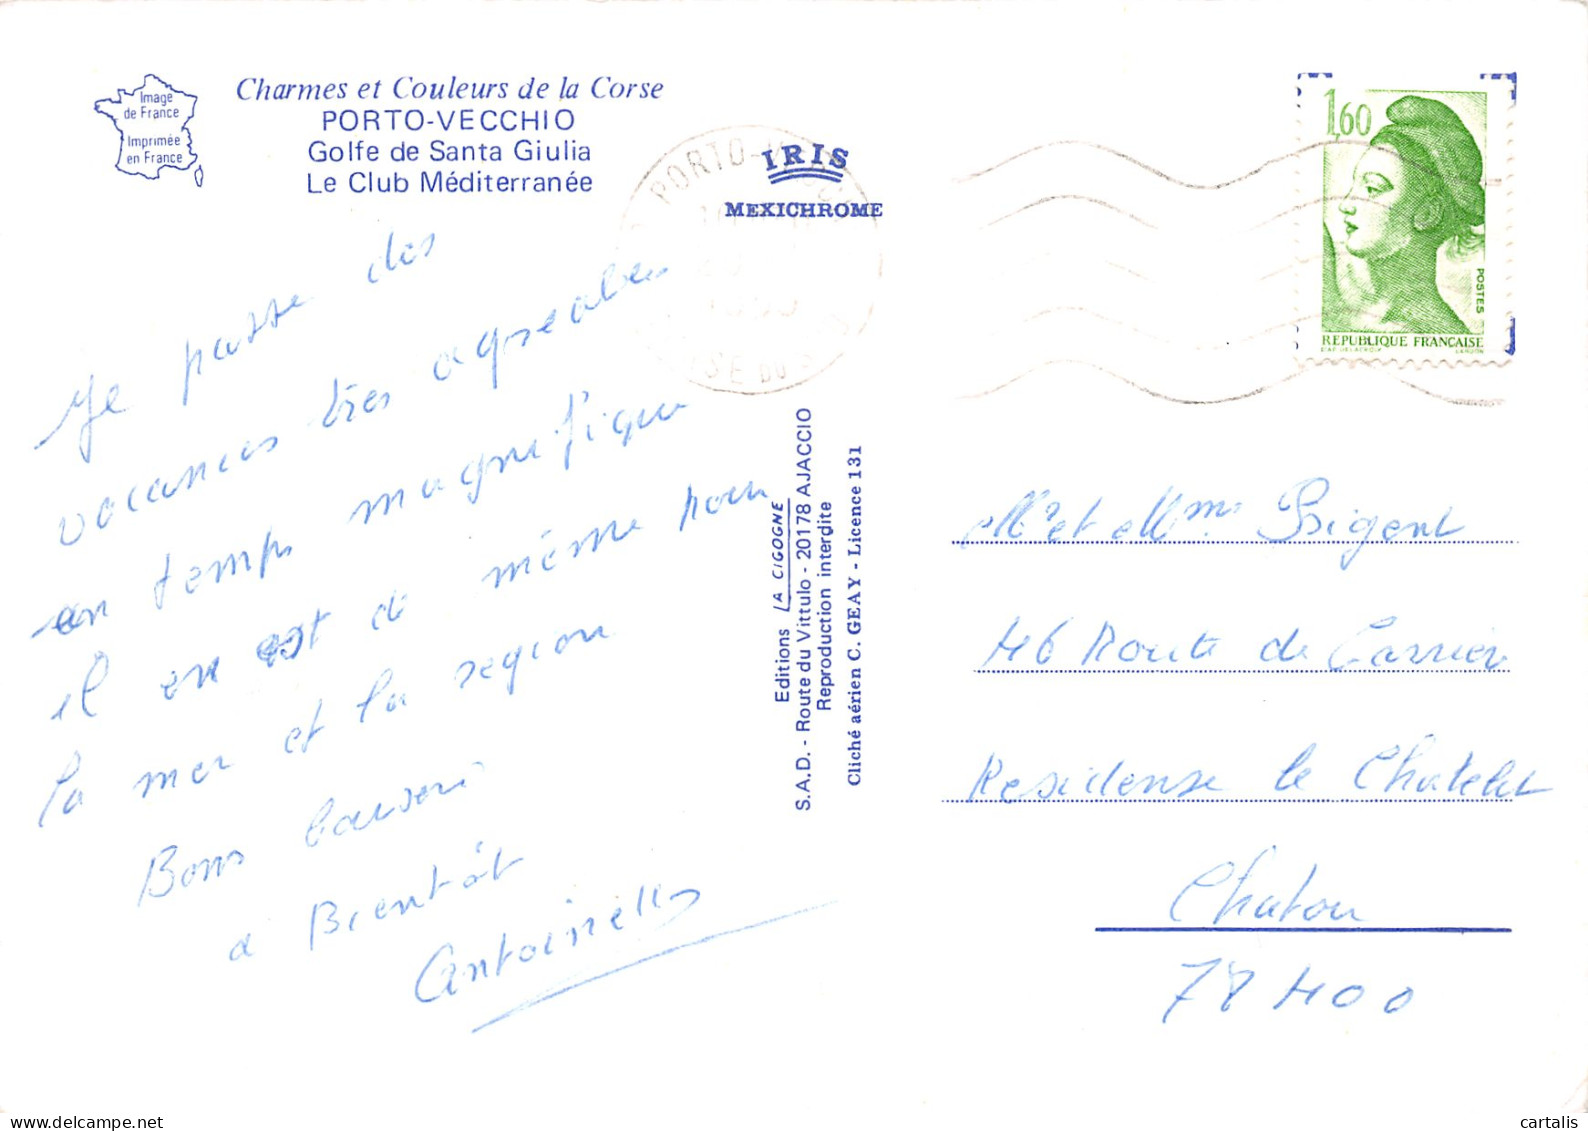 Image
de France
Imprimée
en France
Charmes et Couleurs de la Corse
PORTO-VECCHIO
Golfe de Santa Giulia
Le Club Méditerranée
IRIS
MEXICHROME
1,60
POSTES
REPUBLIQUE FRANÇAISE
Je passe des
vacances très agréables
un temps magnifique
il en est de même pour
la mer et la région
Bons baisers
a Bientôt
Antoinette
Editions LA CIGOGNE
S.A.D. - Route du Vittulo - 20178 AJACCIO
Reproduction interdite
Cliché aérien C. GEAY - Licence 131
Mr et Mme Brigent
46 Route de Carrier
Residense le Chatelet
Chatou
78400
cartalis
delcampe.net